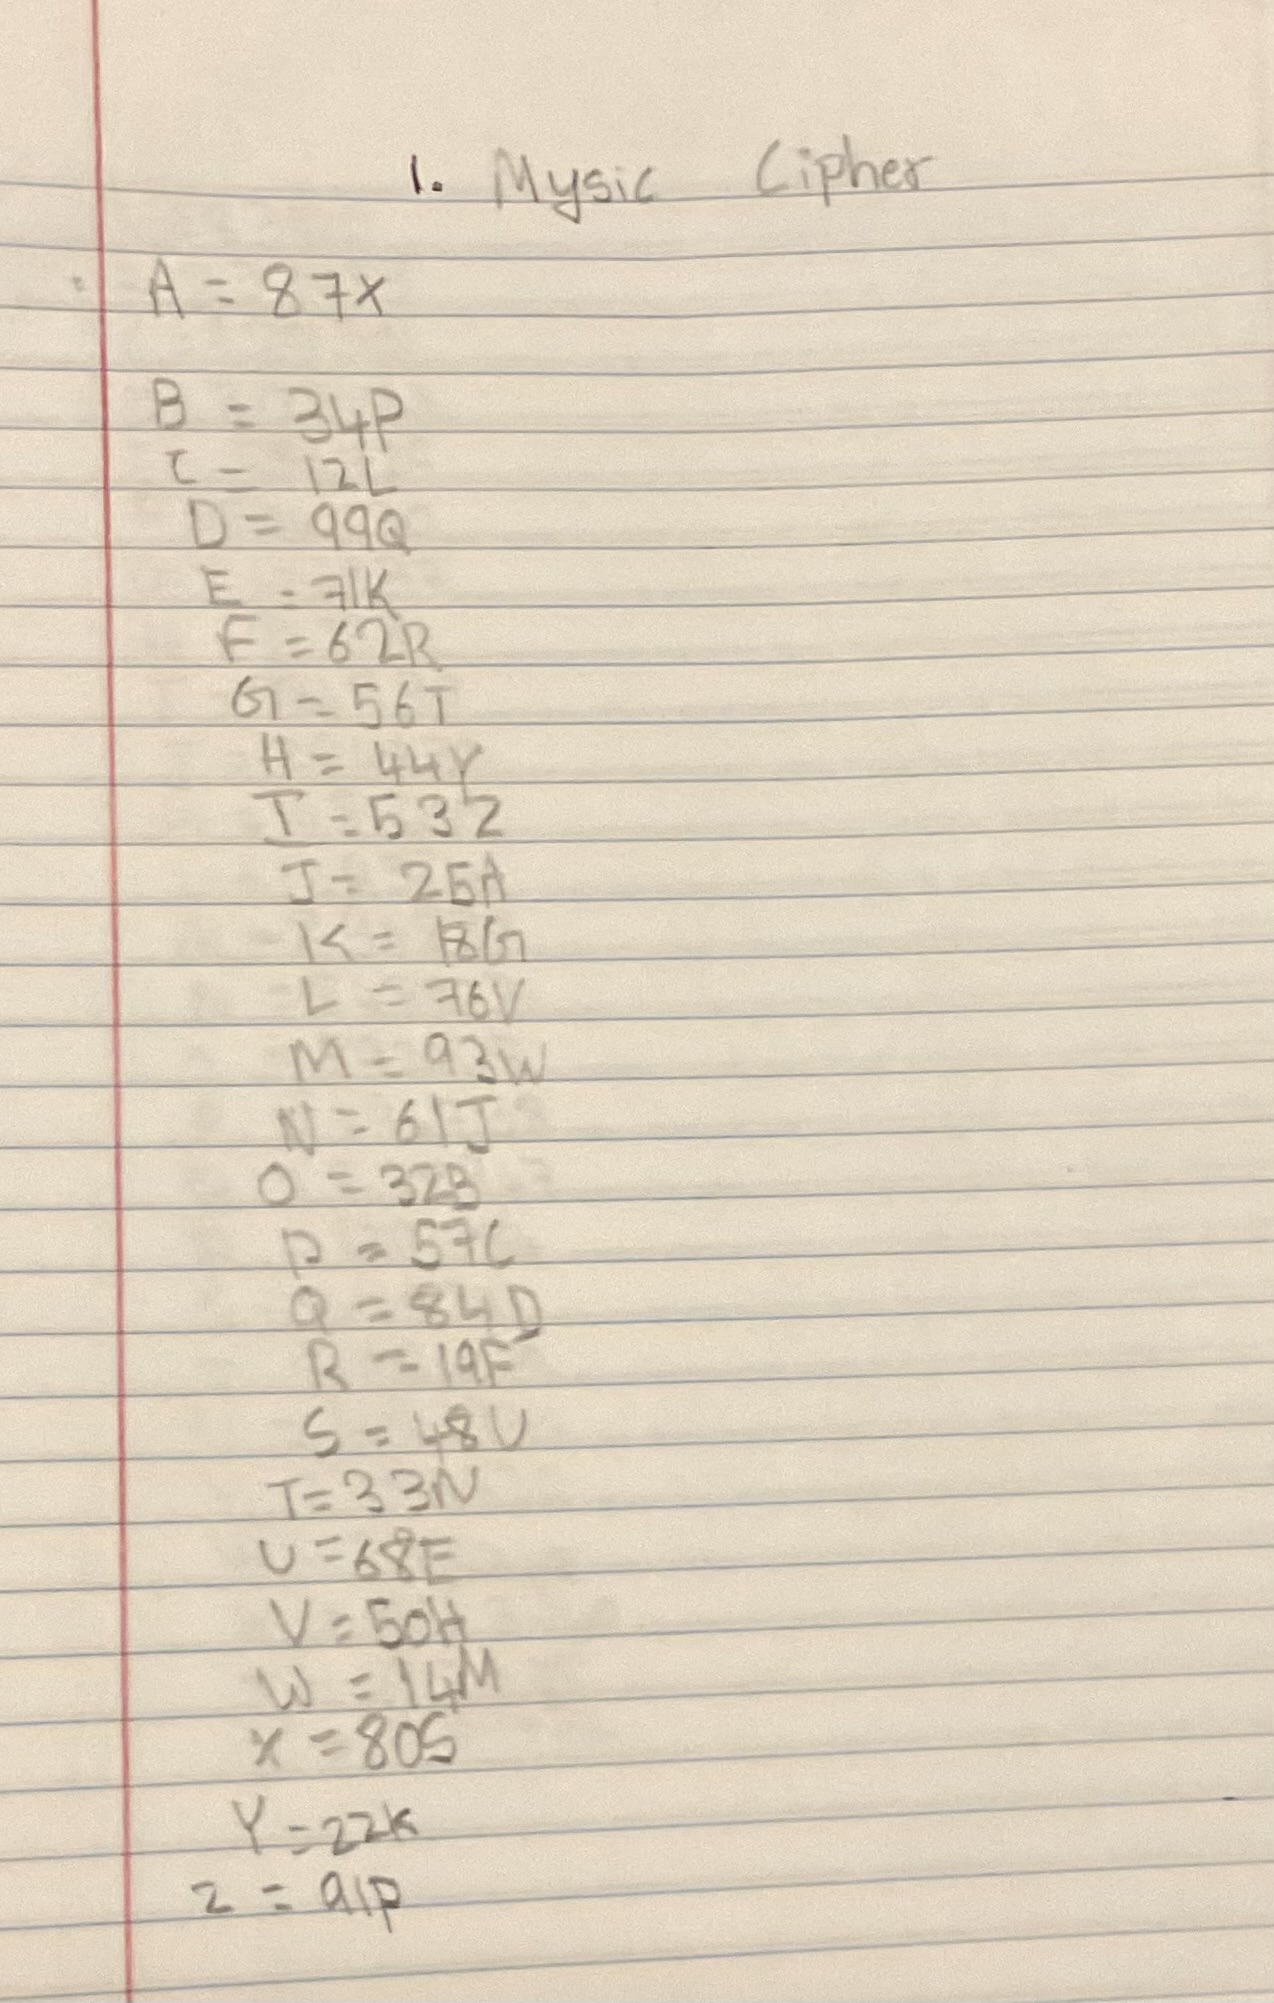 1. Mysic Cipher
A = 87X
B = 34P
C = 12L
D = 99Q
E = 71K
F = 62R
G = 56T
H = 44Y
I = 53Z
J = 25A
K = 18G
L = 76V
M = 93W
N = 61J
O = 32B
P = 57C
Q = 84D
R = 19F
S = 48U
T = 33N
U = 68E
V = 50H
W = 14M
X = 80S
Y = 22K
Z = 91P